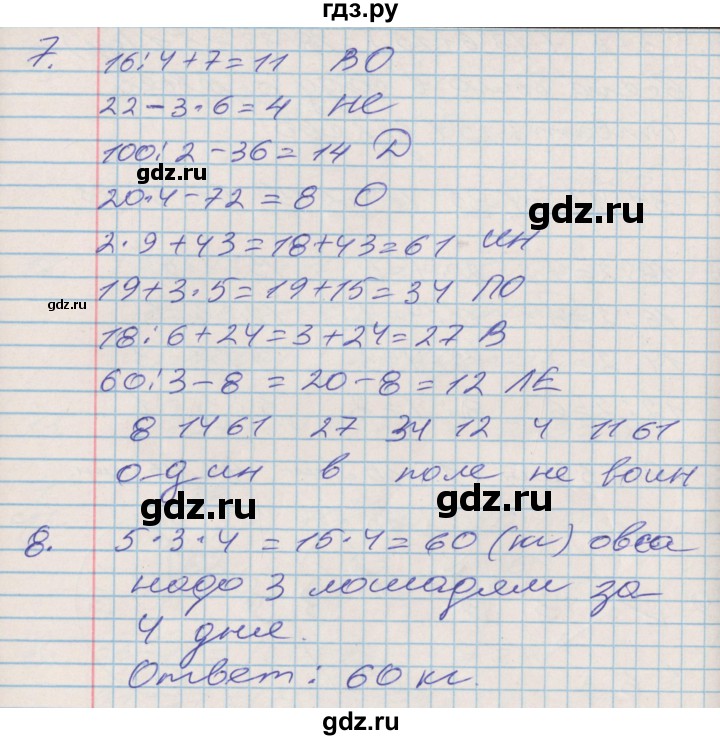 гдз.ру
7. 16:4+7=11 ВО
22-3·6=4 НЕ
100:2-36=14 Д
gdz.ru
20·4-72=8 О
gdz.ru
2·9+43=18+43=61 ИН
19+3·5=19+15=34 ПО
gdz.ru
18:6+24=3+24=27 В
60:3-8=20-8=12 ЛЕ
8 14 61 27 34 12 4 11 61
о-дин в поле не воин
gdz.ru
gdz.ru
8. 5·3·4=15·4=60 (кг) овса
надо 3 лошадям за
4 дня.
Ответ: 60 кг.
gdz.ru